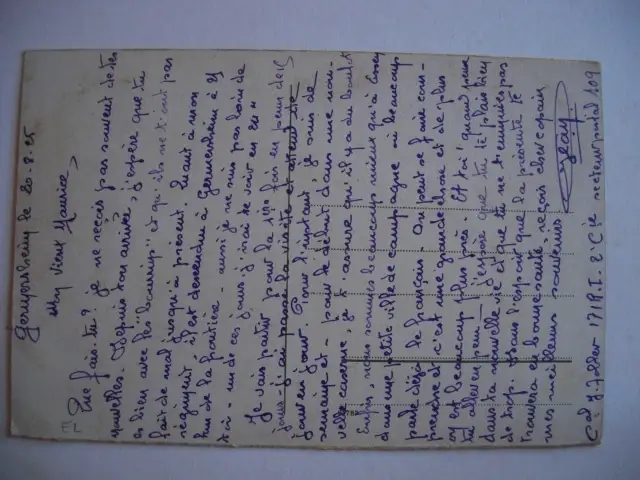 Germersheim le 20-8-25
Mon Vieux Maurice,
Que fais-tu? je ne reçois pas souvent de tes
nouvelles. Depuis ton arrivée, j'espère que tu
es bien avec les "beaucoup" et qu'ils ne t'ont pas
fait de mal jusqu'à présent. Quant à mon
régiment, il est descendu à Germersheim à 25
km de la frontière - aussi je ne suis pas loin de
toi - un de ces jours j'irai te voir en
Je vais partir pour la 1ère fois en perm de 15
jours - j'ai passé la visite et attend de
jour en jour. Pour l'instant, je suis de
semaine et - pour le début dans une nou-
velle caserne, je t'assure qu'il y a du boulot
Enfin, nous sommes beaucoup mieux qu'à
dans une petite ville de campagne où beaucoup
parle déjà le français. On peut se faire com-
prendre et c'est une grande chose et de plus
on est beaucoup plus près. Et toi! quand peux
tu aller en perm? J'espère que tu te plais bien
dans ta nouvelle vie et que tu ne t'ennuies pas
de trop. Dans l'espoir que la présente te
trouvera en bonne santé, reçois cher copain,
mes meilleurs souvenirs
Jean
171 R.I. 2e Cie secteur postal 109